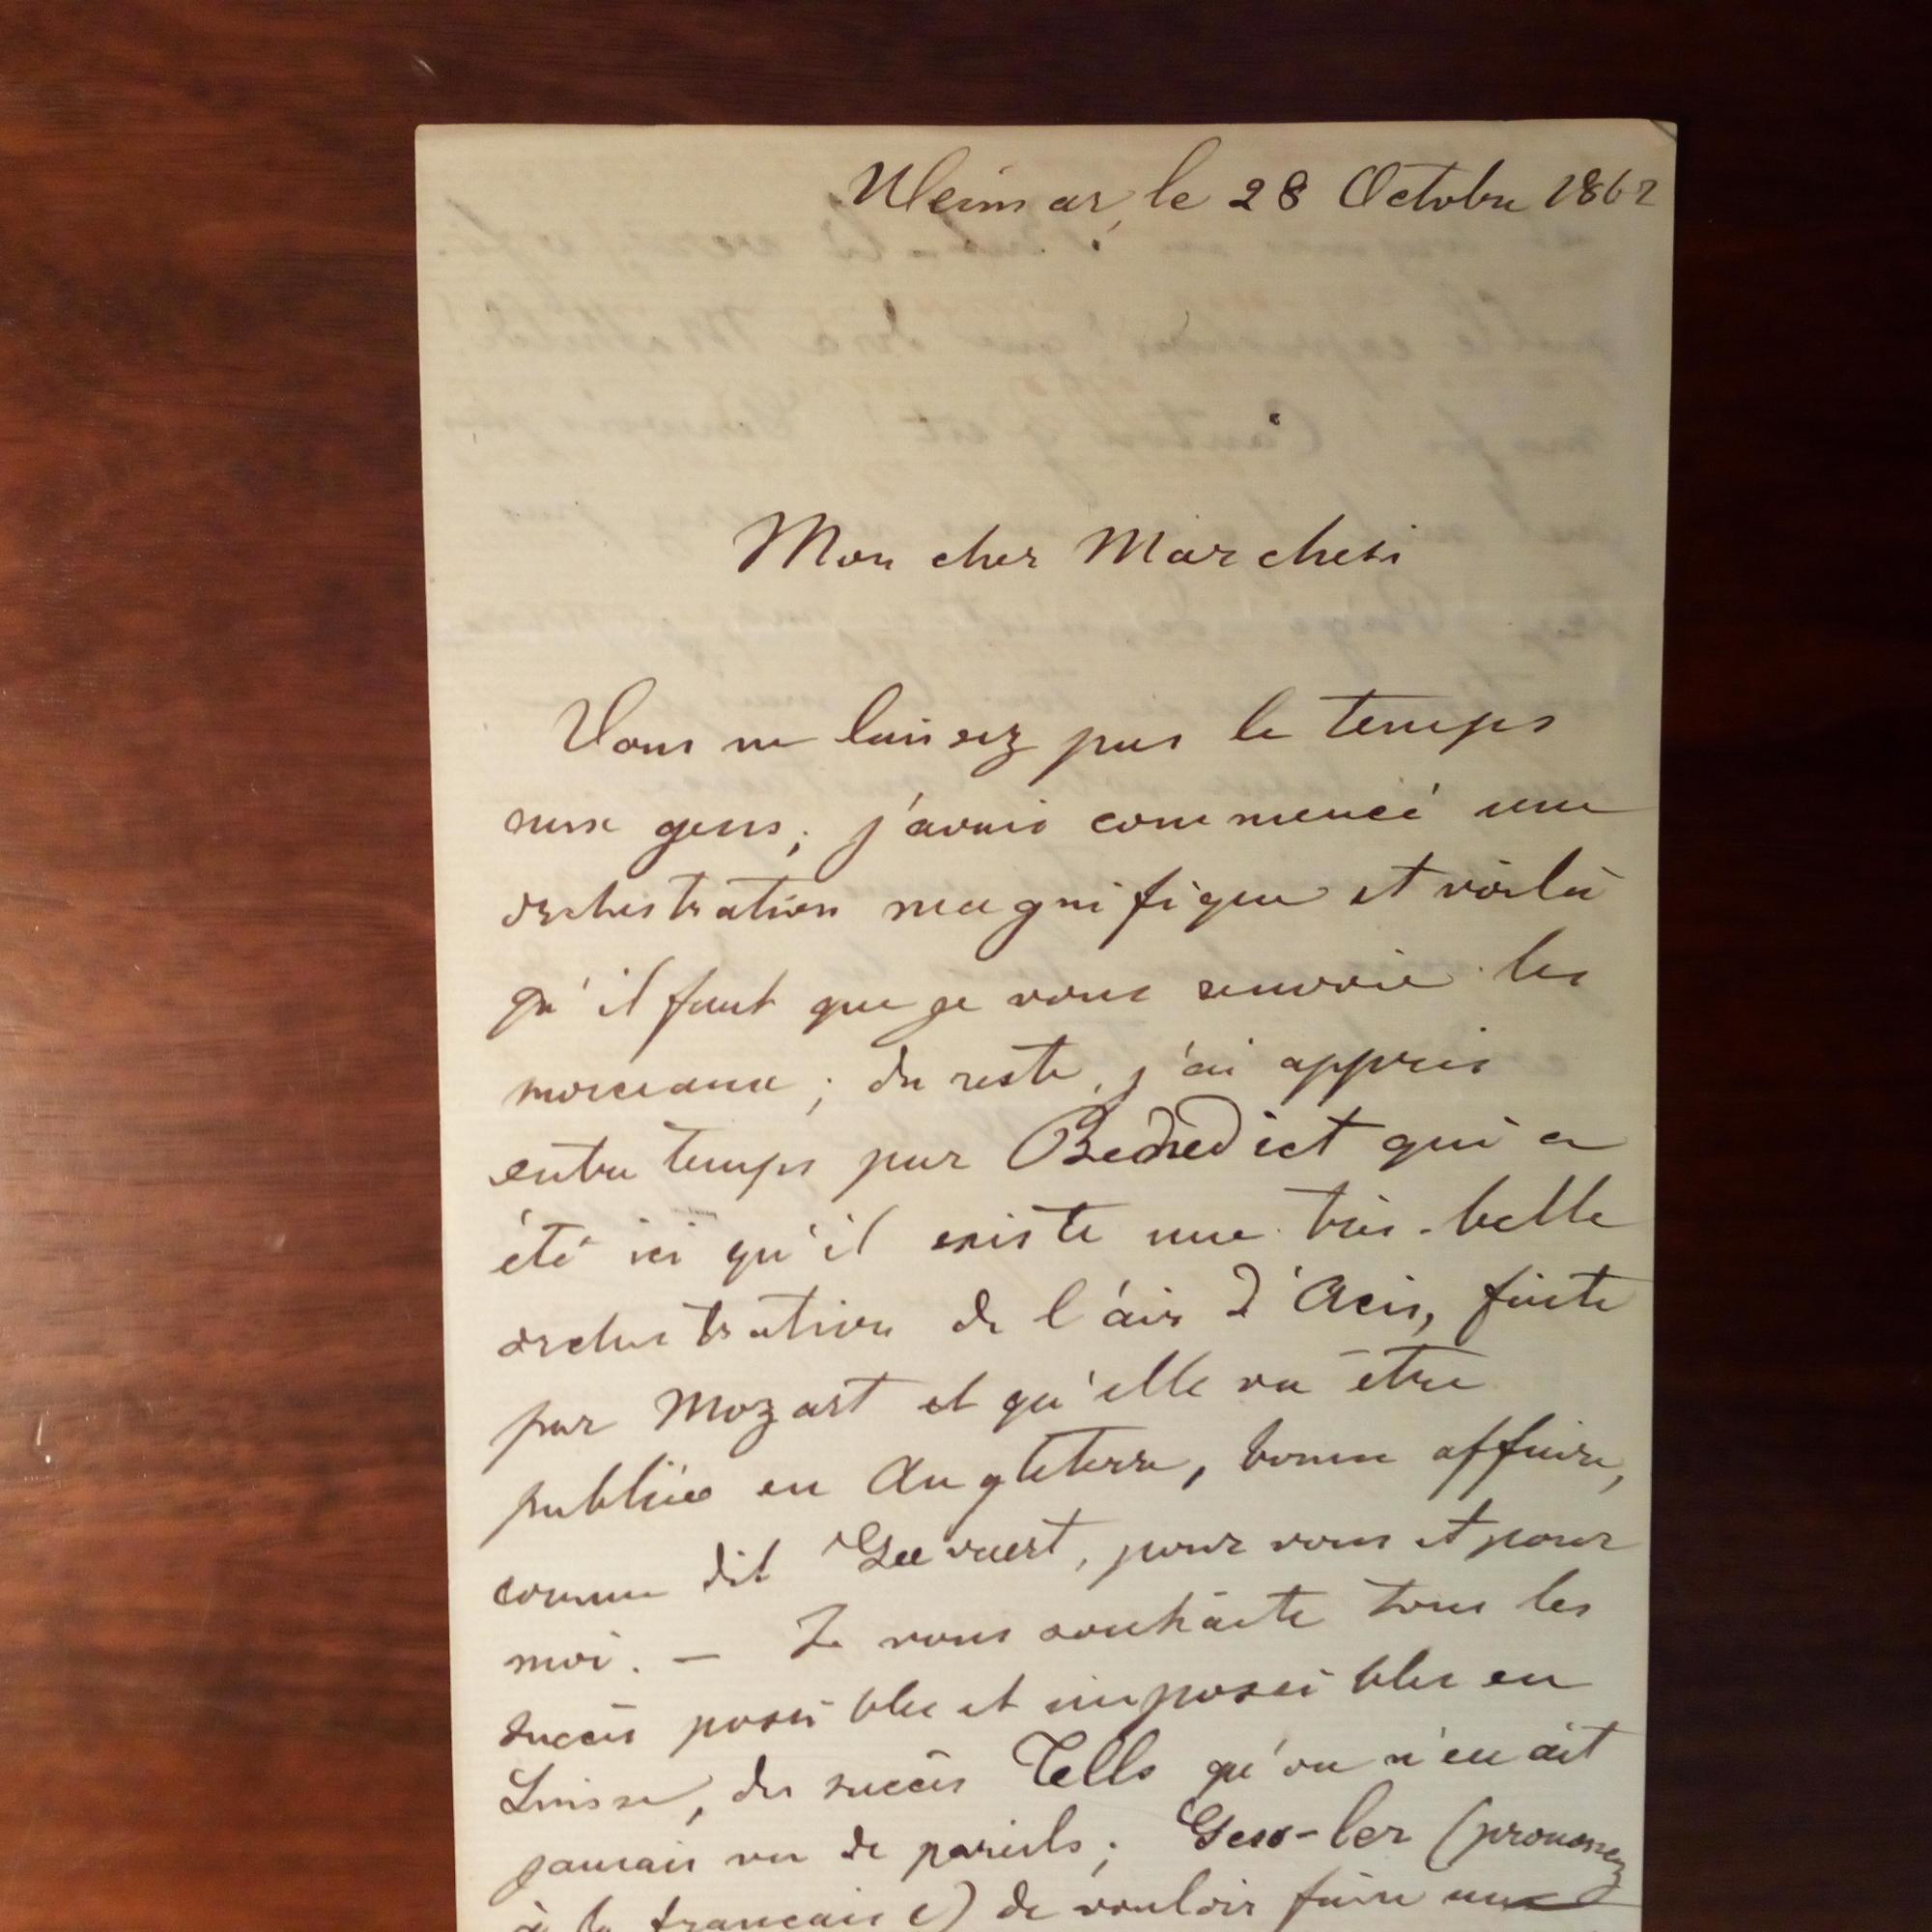 Weimar, le 28 Octobre 1862
Mon cher Marchesi
Vous ne laissez pas le temps
aux gens; j'avais commencé une
orchestration magnifique et voilà
qu'il faut que je vous renvoie les
morceaux; du reste, j'ai appris
entre temps par Benedict qui a
été ici qu'il existe une très-belle
orchestration de l'air d'Acis, faite
par Mozart et qu'elle va être
publiée en Angleterre, bonne affaire,
comme dit Gevaert, pour vous et pour
moi. — Je vous souhaite tous les
succès possibles et impossibles en
Suisse, des succès Tells qu'on n'en ait
jamais vu de pareils; Gess-ler (prononcez
à la française) de vouloir faire une